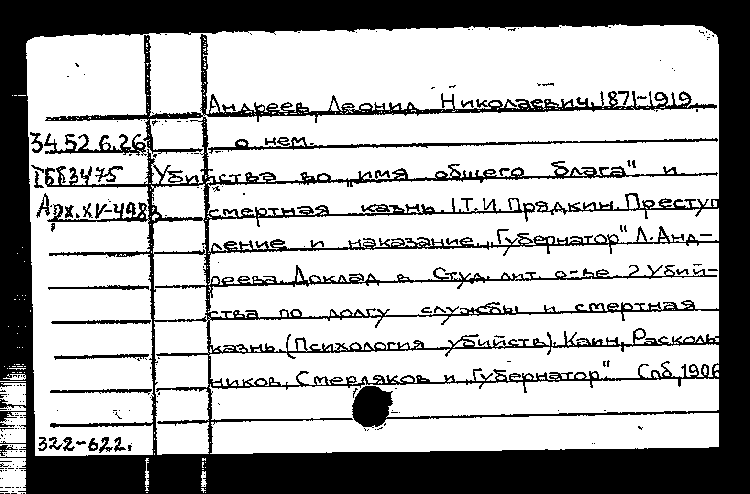 Андреев, Леонид Николаевич, 1871-1919.
34.52.6.26 о нем.
Убийства во „имя общего блага" и
Арх.XV-498 смертная казнь. I.Т.И. Прядкин. Преступ
ление и наказание „Губернатор" Л. Анд-
реева. Доклад в Студ. лит. о-ве. 2 Убий=
ства по долгу службы и смертная
казнь. (Психология убийств). Каин, Расколь
ников, Смердяков и „Губернатор" Спб, 1906
322-622.